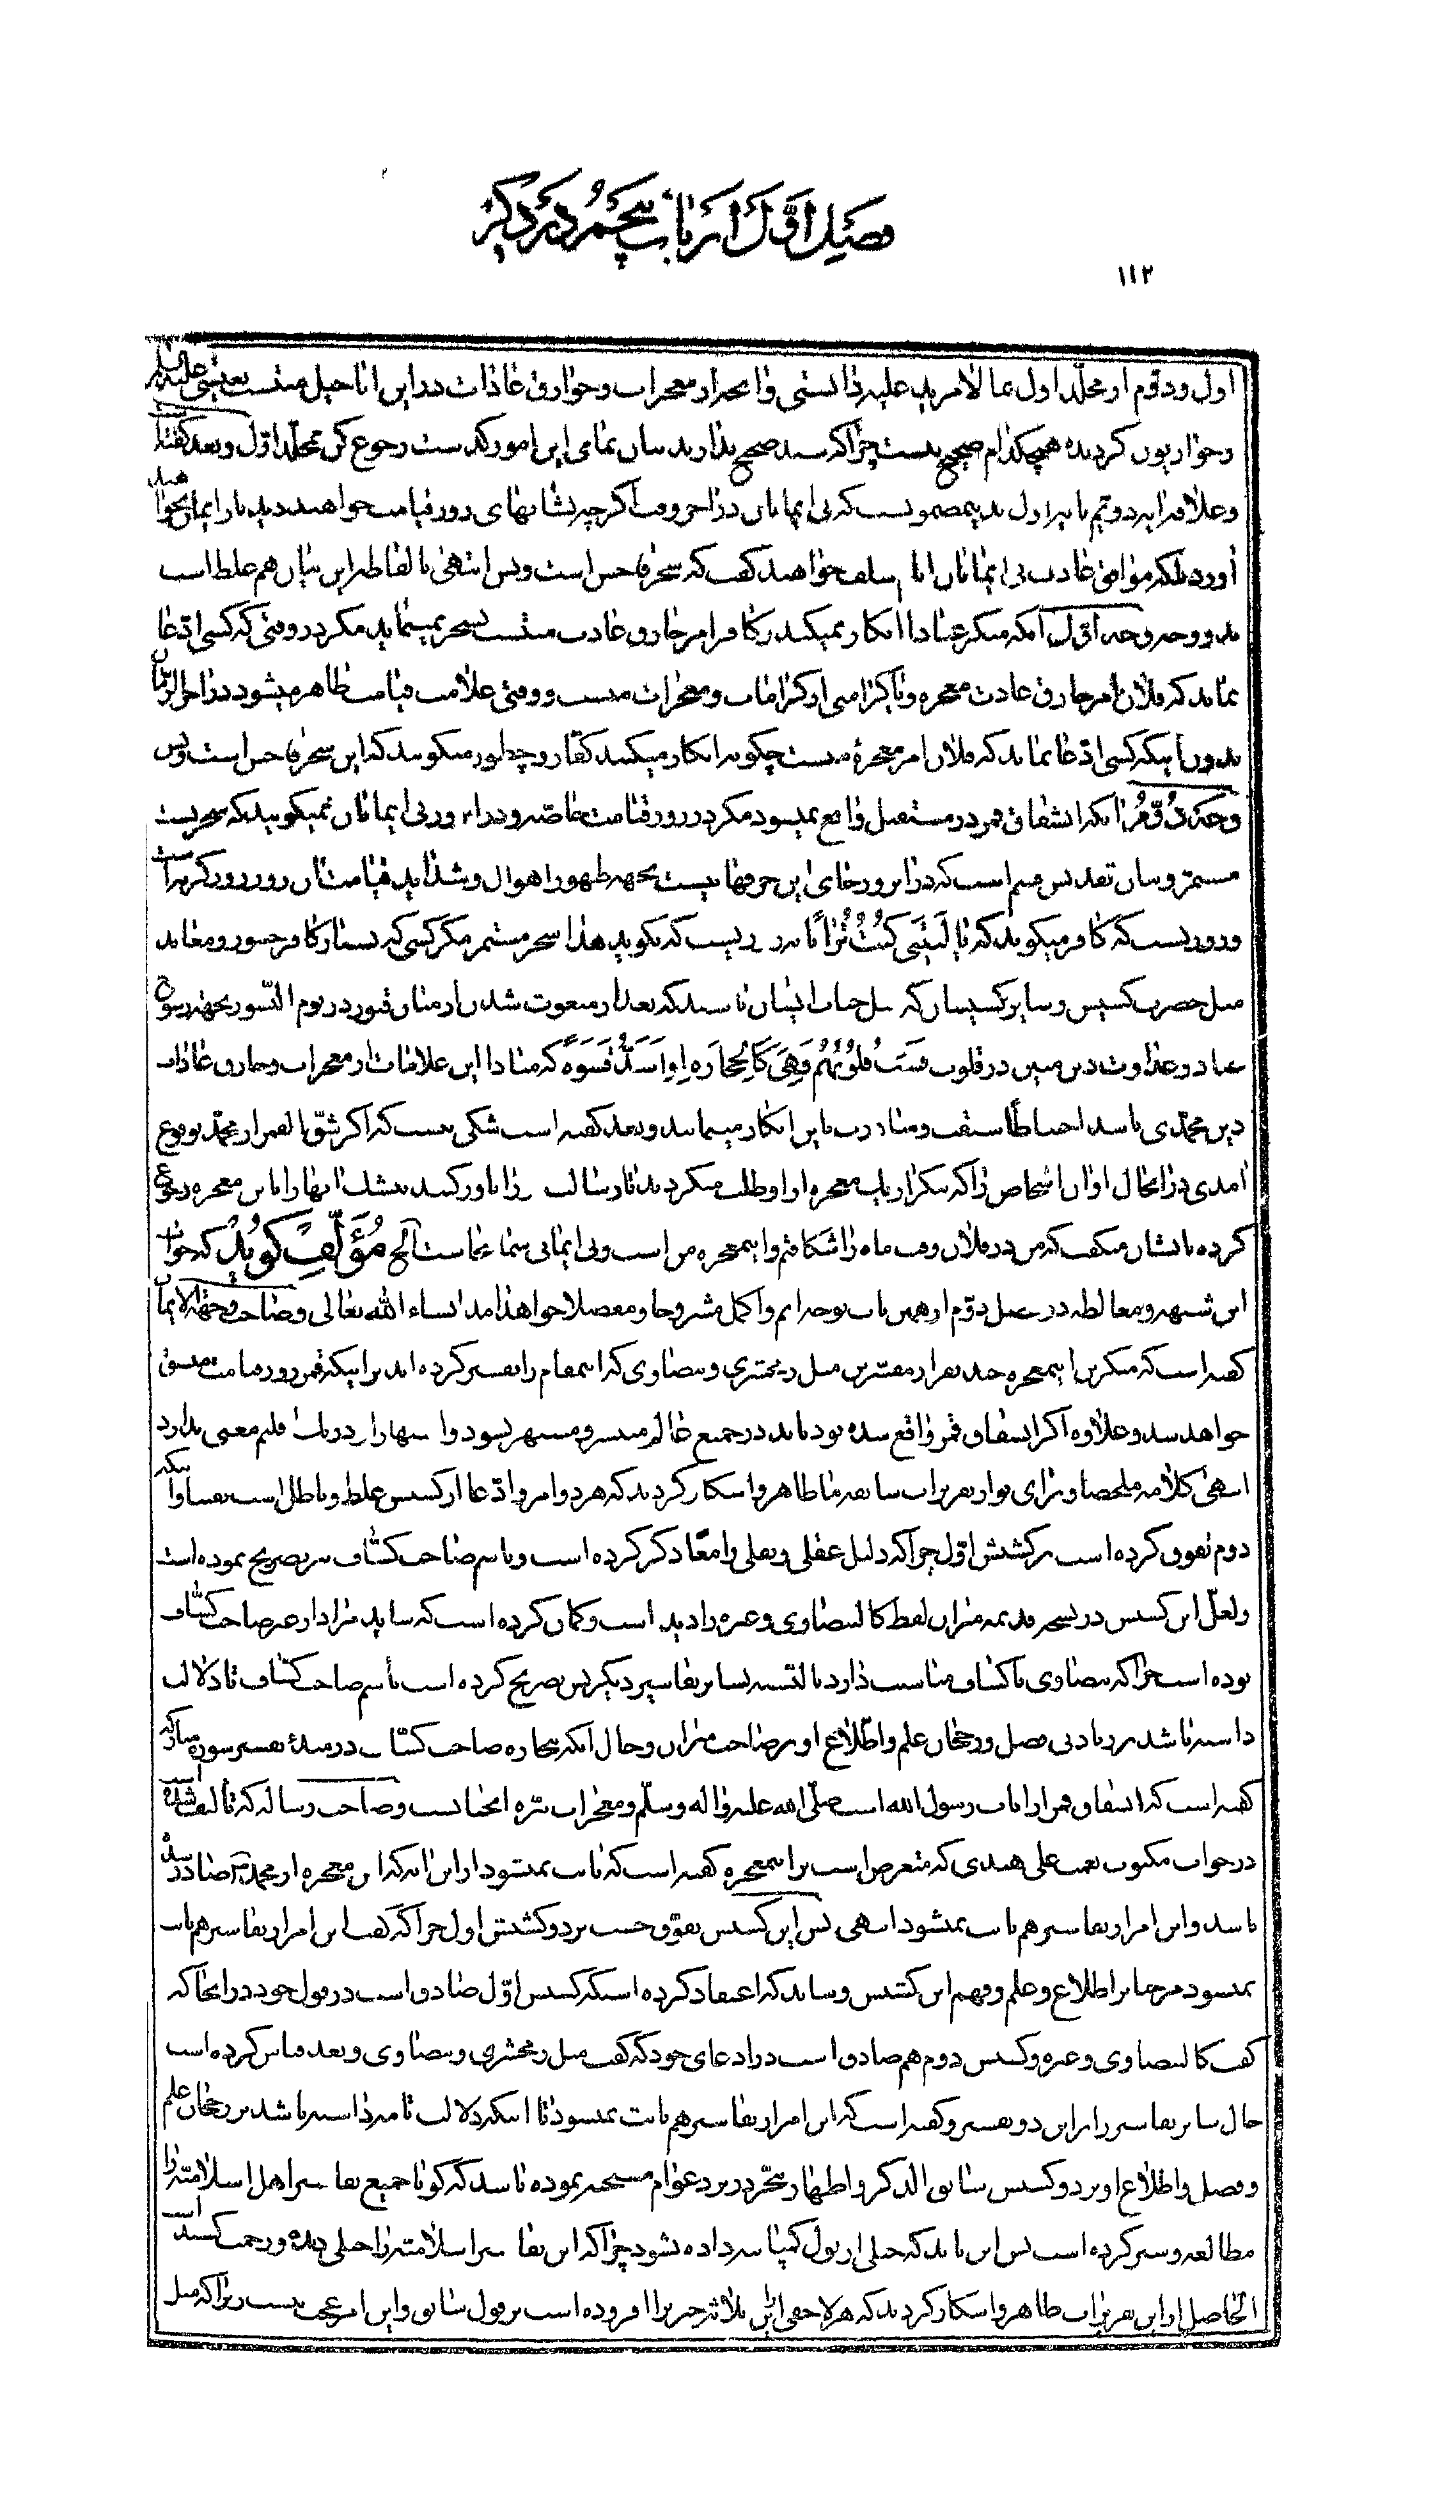 فصل اول از باب پنجم در ذکر
۱۱۲
اول و دوّم از مجلّد اول بما لا مزید علیه دانستی و اعجاز و معجزات و خوارق عادات در این اناجیل منتسب بعیسی علیه السلام
و حواریون گردیده هیچکدام صحیح نیست چرا که سند صحیح ندارند بیان تمامی این امور گذشت رجوع کن بمجلّد اوّل و بعد گفته
و علاوه آیه دویّم بآیه اول بدین مضمونست که بی ایمانان در آخر وقت اگرچه نشانهای روز قیامت خواهند دید باز ایمان نخواهند
آورد بلکه موافق عادت بی ایمانان ایام سلف خواهند گفت که سحر فاحش است و بس انتهی بالفاظه این بیان هم غلط است
بدو وجه وجه اوّل آنکه منکر عنادا انکار نمیکند و کافر امر خارق عادت منتسب بسحر نمینماید مگر در وقتی که کسی ادّعا
نماید که فلان امر خارق عادت معجزه و یا کرامتی از کرامات و معجزات منست و وقتی علامت قیامت ظاهر میشود در آخر الزّمان
بدون اینکه کسی ادّعا نماید که فلان امر معجزهٔ منست چگونه انکار میکنند کفّار و چطور میگویند که این سحر فاحش است و بس
وجه دوّم آنکه انشقاق قمر در مستقبل واقع نمیشود مگر در روز قیامت خاصّه و در آن روز بی ایمانان نمیگویند که سحریست
مستمر و
ورود نیست که کافر میگوید که یا لیتنی کنت ترابا
که بگوید هذا سحر مستمر مگر کسی که بسیار کافر جسور و معاند
مثل حضرت کشیش و سایر کشیشان که
بعد از مبعوث شدن از میان قبور در یوم النّشور بجهة رسوخ
عناد و عداوت دین مبین در قلوب قست قلوبهم فهی کالحجارة او اشدّ قسوة که مبادا این علامات از معجزات و خارق عادات
دین محمّدی باشد احتیاطاً
انکار مینمایند و بعد گفته است شکی نیست که اگر شقّ القمر از محمّد بوقوع
آمدی در آنحال او آن اشخاص را که بتکرار باب معجزه از او طلب میکردند تا رسالت را باور کنند بیشک آنها را باین معجزه رجوع
کرده بایشان میگفت که من در فلان وقت ماه را شکافتم و اینمعجزه من است و بی ایمانی شما بیجاست الخ مؤلّف گوید که جواب
این شبهه و مغالطه در فصل دوّم از همین باب بوجه اتم و اکمل مشروحا و مفصلا خواهد آمد انشاء الله تعالی و صاحب وجهة الایمان
گفته است که منکرین اینمعجزه چند نفر از مفسّرین مثل زمخشری و بیضاوی که اینمقام را تفسیر کرده اند بر اینکه قمر روز قیامت منشق
خواهد شد و علاوه اگر انشقاق قمر واقع شده بود باید در جمیع عالم منتشر و مشتهر بشود و
معنی ندارد
انتهی کلامه ملخصا و برای تو از تقریرات سابقه ما ظاهر و آشکار گردید که هر دو امر و ادّعا از کشیش غلط و باطل است
دوم تفوق کرده است بر کشیش اوّل چرا که دلیل عقلی و نقلی را معاً ذکر کرده است و باسم صاحب کشّاف نیز تصریح نموده است
و لعلّ این کشیش در نسخه قدیمه میزان لفظ کالبیضاوی و غیره را دیده است و گمان کرده است که شاید مراد از غیره صاحب کشّاف
بوده است چرا که بیضاوی با کشاف مناسبت دارد بالنّسبه بسایر تفاسیر دیگر پس تصریح کرده است باسم صاحب کشّاف تا دلالت
داشته باشد بر زیادتی فضل و رجحان علم و اطّلاع او بر صاحب میزان و حال آنکه بیچاره صاحب کشّاف در مبدأ تفسیر سوره مبارکه
گفته است که انشقاق قمر از آیات رسول الله است صلّی الله علیه و آله و سلّم و معجزات نیّره آنجناب است و صاحب رساله که تألیف شده است
در جواب مکتوب نعمت علی هندی که متعرض است بر اینمعجزه گفته است که ثابت نمیشود از این آیه که این معجزه از محمّد صادر شده
باشد و این امر از تفاسیر هم ثابت نمیشود انتهی پس این کشیش تفوّق جست بر دو کشیش اول چرا که گفت این امر از تفاسیر هم ثابت
نمیشود مرحبا بر اطلاع و علم و فهم این کشیش و شاید که اعتقاد کرده است که کشیش اوّل صادق است در قول خود در آنجا که
گفت کالبیضاوی و غیره و کشیش دوم هم صادق است در ادعای خود که گفت مثل زمخشری و بیضاوی و بعد قیاس کرده است
حال سایر تفاسیر را بر این دو تفسیر و گفته است که این امر از تفاسیر هم ثابت نمیشود تا اینکه دلالت تامه داشته باشد بر رجحان علم
و فضل و اطلاع او بر دو کشیش سابق الذکر و اظهار تبحّر در نزد عوام مسیحیه نموده باشد که گویا جمیع تفاسیر اهل اسلامیّه را
مطالعه و سیر کرده است پس این باید که خیلی از پول کمپانیه داده بشود چرا که این تفاسیر اسلامیّه را خیلی دیده و زحمت کشیده است
الحاصل از این تقریرات ظاهر و آشکار گردید که هر لاحقی از این ثلاثه چیزی را افزوده است بر قول سابق و این امر عجبی نیست زیرا که مثل